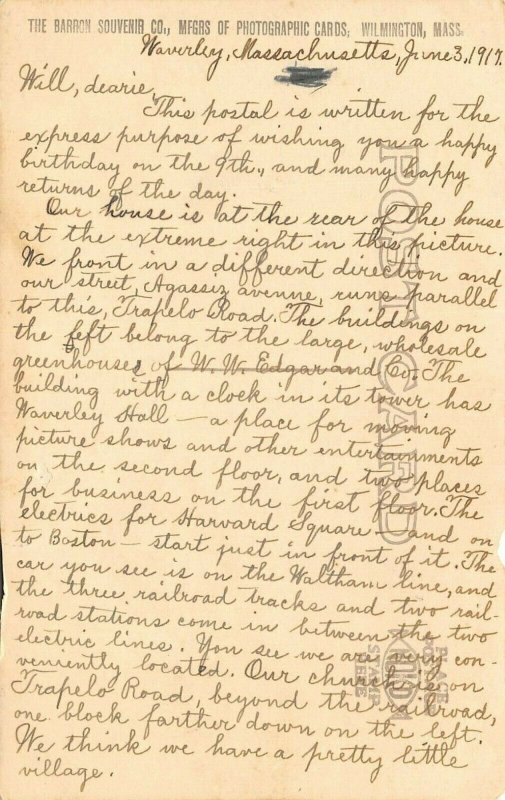 THE BARRON SOUVENIR CO., MFGRS OF PHOTOGRAPHIC CARDS, WILMINGTON, MASS.
Waverley, Massachusetts, June 3, 1917.
Will, dearie,
This postal is written for the
express purpose of wishing you a happy
birthday on the 9th., and many happy
returns of the day.
Our house is at the rear of the house
at the extreme right in this picture.
We front in a different direction and
our street, Agassiz avenue, runs parallel
to this, Trapelo Road. The buildings on
the left belong to the large, wholesale
greenhouses of W. W. Edgar and Co. The
building with a clock in its tower has
Waverley Hall — a place for moving
picture shows and other entertainments
on the second floor, and two places
for business on the first floor. The
electrics for Harvard Square — and on
to Boston — start just in front of it. The
car you see is on the Waltham line, and
the three railroad tracks and two rail-
road stations come in between the two
electric lines. You see we are very con-
veniently located. Our church is on
Trapelo Road, beyond the railroad,
one block farther down on the left.
We think we have a pretty little
village.
POST CARD
PLACE
STAMP
HERE